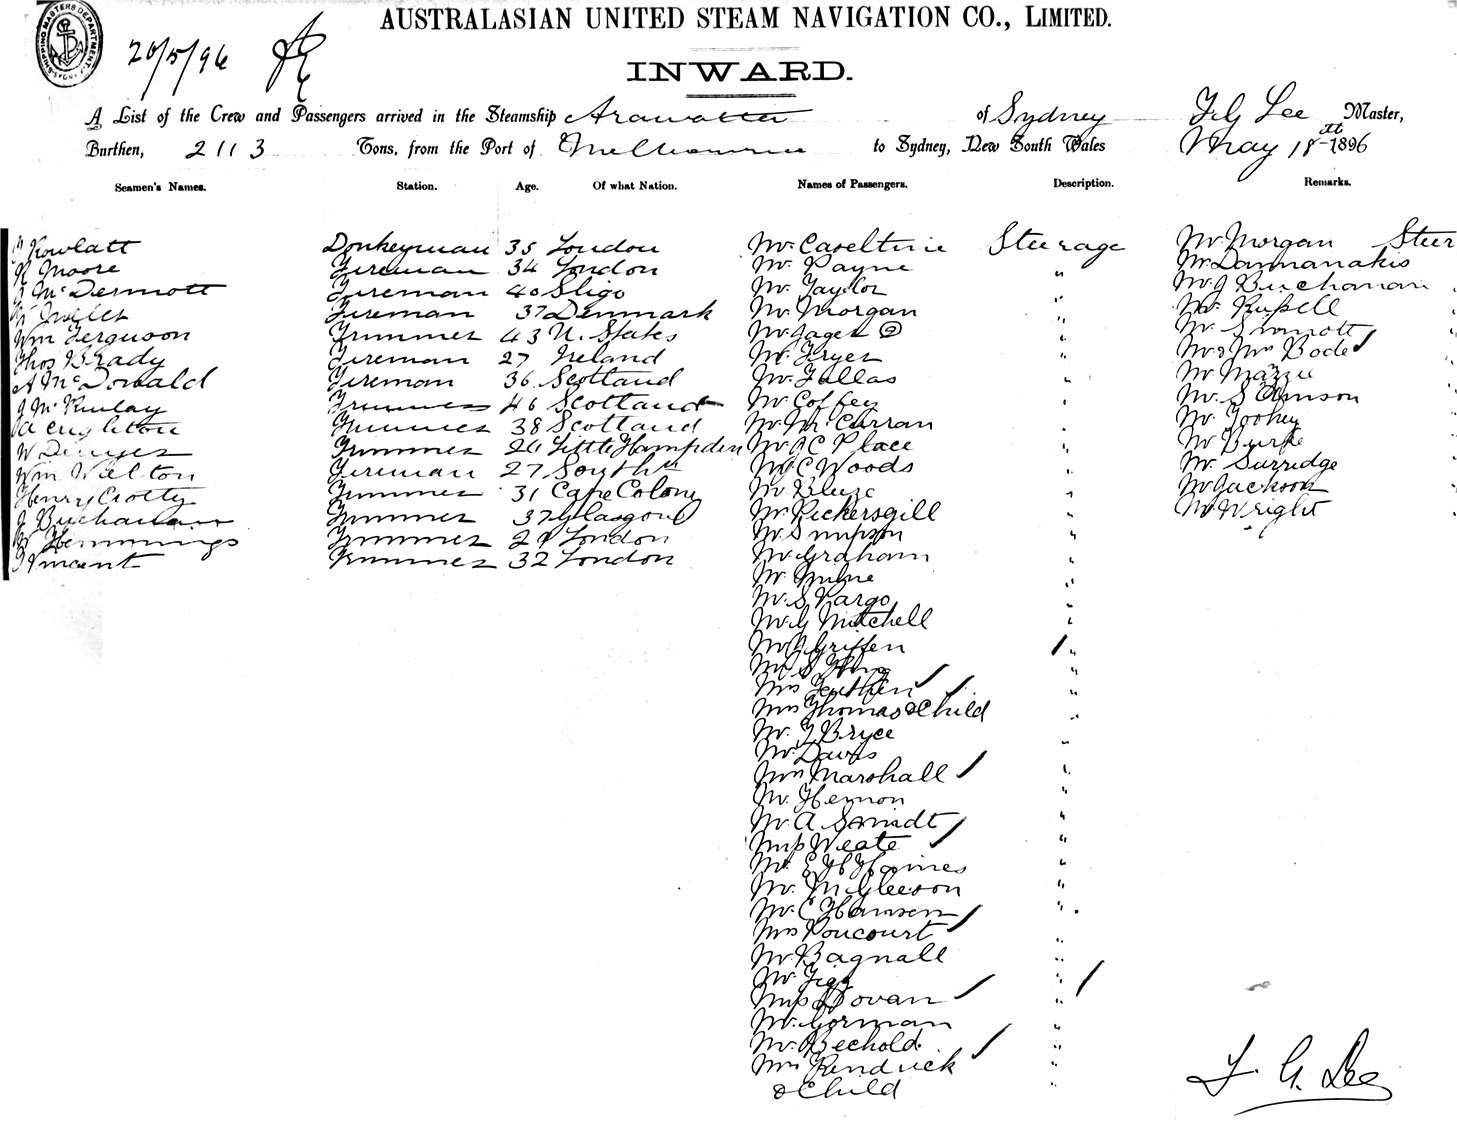 AUSTRALASIAN UNITED STEAM NAVIGATION CO., LIMITED.
SHIPPING MASTERS DEPARTMENT SYDNEY
20/5/96
INWARD.
A List of the Crew and Passengers arrived in the Steamship Arawatta of Sydney F. G Lee Master,
Burthen, 2113 Tons, from the Port of Melbourne to Sydney, New South Wales May 18th 1896
Seamen's Names. Station. Age. Of what Nation. Names of Passengers. Description. Remarks.
Rowlatt Donkeyman 35 London Mr. Caseltine Steerage Mr Morgan Steer
Moore Fireman 34 London Mr. Payne " Mr Dammanakis
McDermott Fireman 40 Sligo Mr. Taylor " Mr J Buchanan "
Fireman 37 Denmark Mr. Morgan " Mr. Russell
Wm Ferguson Trimmer 43 U. States Mr. Jager " Mr. Sinnott
Thos Brady Fireman 27 Ireland Mr. Fryer " Mr & Mrs Bode
A McDonald Fireman 36 Scotland Mr. Fallas " Mr
J McKinlay Trimmer 46 Scotland Mr Coffey " Mr. S
A Crighton Trimmer 38 Scotland Mr. McCurran " Mr Toohey
W Dwyer Trimmer 26 Little Hampden Mr J C Place " Mr Burke
Wm Fireman 27 Southn Mr C Woods " Mr Surridge
Henry Crotty Trimmer 31 Cape Colony Mr " Mr Jackson
J Buchanan Trimmer 37 Glasgow Mr Pickersgill " Mr Wright
W Hemmings Trimmer 29 London Mr Simpson "
Vincent Trimmer 32 London Mr Graham "
Mr. Milne "
Mr. S Vargo "
Mr. G Mitchell "
Mr J Griffen "
Mr S King "
Mrs "
Mrs Thomas & Child "
Mr. J Bryce "
Mr. Davis "
Mrs Marshall "
Mr. Hernon "
Mr. A Smidt "
Miss Weate "
Mr. E H Haines "
Mr. McGleeson "
Mr. C Hansen "
Mrs Poncourt "
Mr Bagnall "
Mr "
Miss Dovan "
Mr. Gorman "
Mr. Bechold "
Mrs Kendrick "
& Child "
F. G. Lee